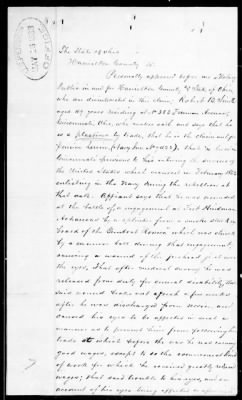 The State of Ohio
Hamilton County SS.
Personally appeared before me a Notary
Public in and for Hamilton County & State of Ohio,
who am disinterested in this claim, Robert B. Smith
aged 49 years residing at No 352 Freeman Avenue,
Cincinnati Ohio, who under oath and says that he
is a plasterer by trade, that he is the claimant for
pension herein, that he lived in
Cincinnati previous to his entering the service of
the United States which occurred in February 1862
enlisting in the Navy during the rebellion at
that date. Affiant says that he was wounded
at the battle of a engagement at Fort Hindman
Arkansas by a splinter from a smoke stack on
board of the Gunboat which was struck
by a cannon ball during that engagement,
causing a wound of the forehead just over
the eyes, That after medical survey he was
released from duty for several disability, that
said wound broke out afresh a few weeks
after he was discharged from service and
caused his eyes to be affected in such a
manner as to prevent him from following his
trade at which before the war he was earning
good wages, except to do the commonest kind
of work for which he received greatly reduced
wages; that said trouble to his eyes, and on
account of his eyes being affected